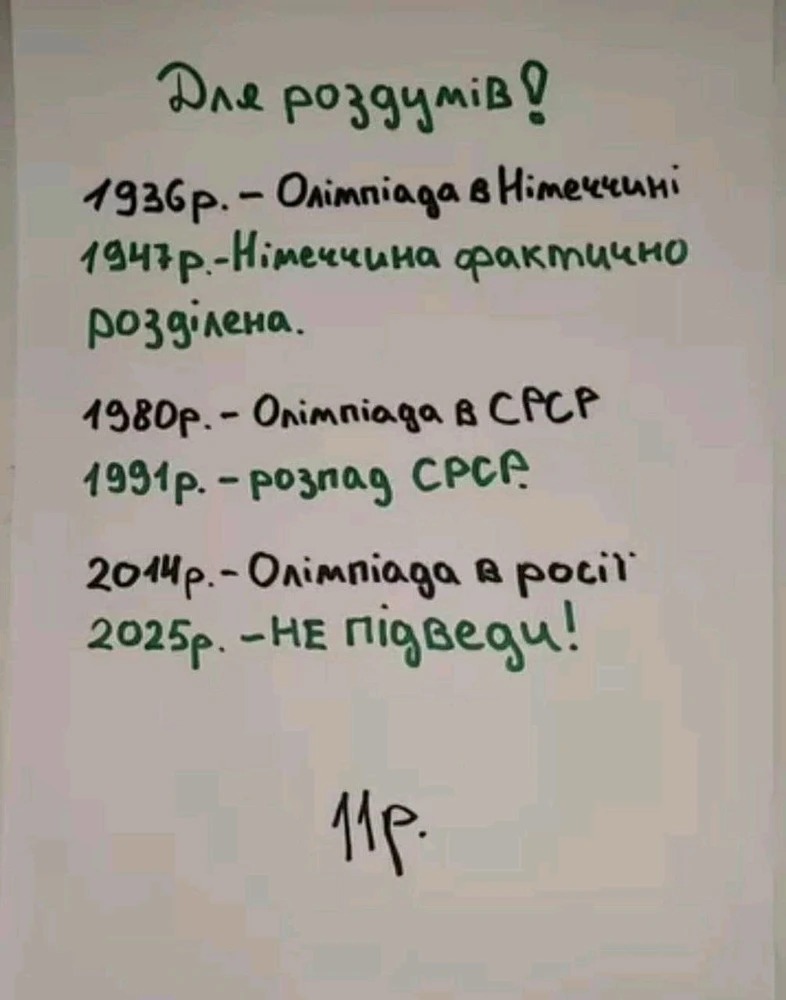 Для роздумів!
1936р. – Олімпіада в Німеччині
1947р.-Німеччина фактично
розділена.
1980р. – Олімпіада в СРСР
1991р. – розпад СРСР.
2014р. – Олімпіада в росії
2025р. – НЕ підведи!
11р.